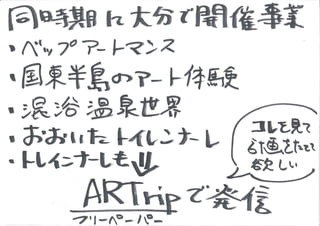 同時期に大分で開催事業
・ベップアートマンス
・国東半島のアート体験
・混浴温泉世界
・おおいたトイレンナーレ
・トレインナーレも
ARTripで発信
フリーペーパー
コレを見て
計画をたてて
欲しい